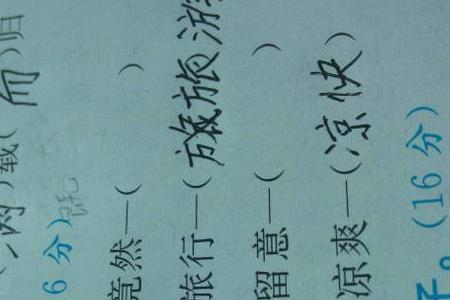 满)载(而)归
6分)
竟然—( )
旅行—(旅游
留意—( )
凉爽—(凉快)
。(16分)